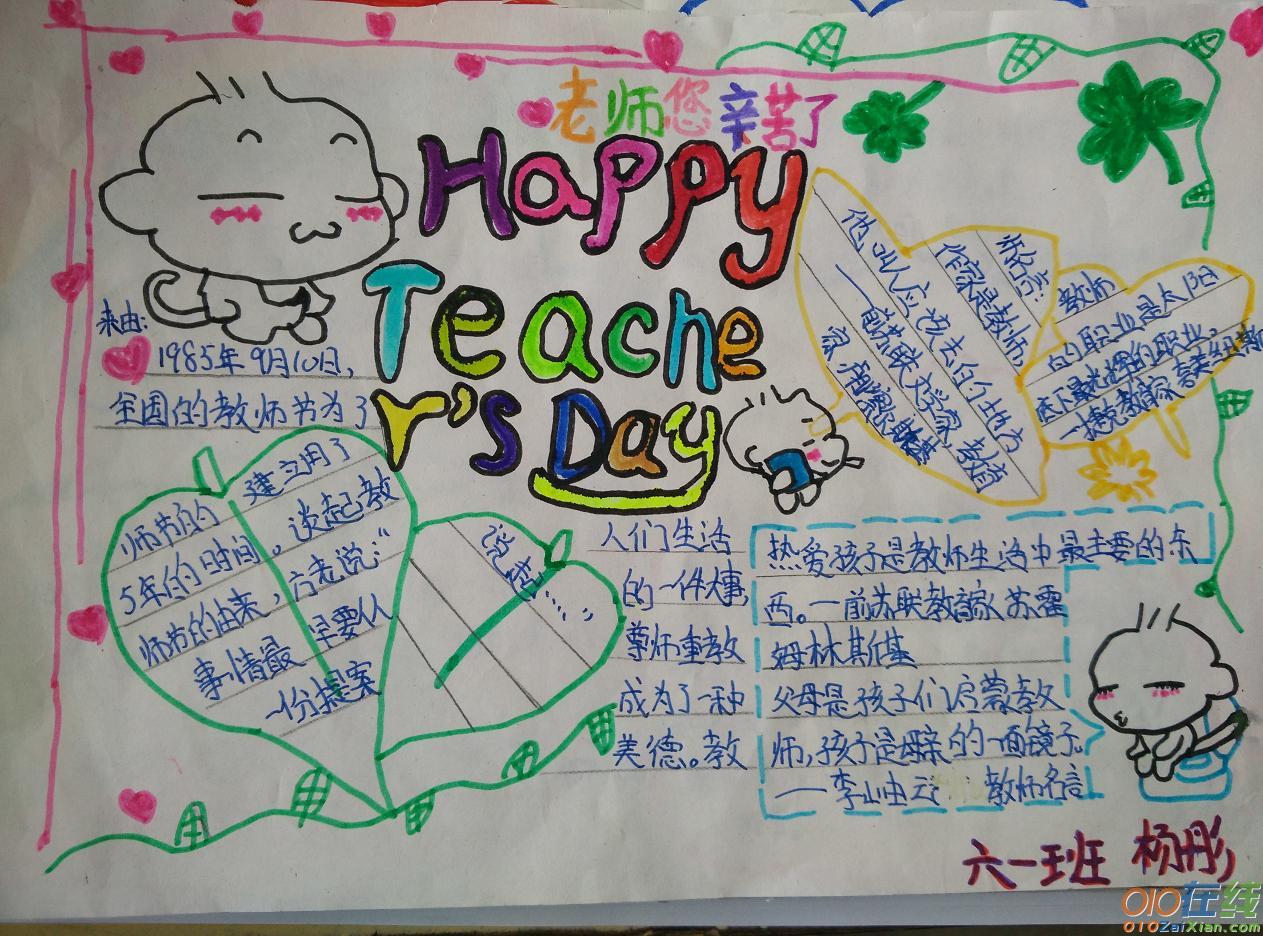 老师您辛苦了
Happy
Teache
r's Day
来由:
1985年9月10日,
全国的教师节为了
建立用了
师节的
5年的时间, 谈起教
师节的由来, 方老说:"
事情最早要从
一份提案
说起……"
人们生活
的一件大事,
尊师重教
成为了一种
美德。教
师名言:
作家是教师,
他叫人应该去的地方
——前苏联文学家 教育
家
教师
的职业是太阳
底下最光辉的职业。
——捷克教育家 夸美纽斯
热爱孩子是教师生活中最主要的东
西。——前苏联教育家 苏霍
姆林斯基
父母是孩子们启蒙教
师,孩子是母亲的一面镜子。
——李山由云 教师名言
六一班 杨彤
010在线
010ZaiXian.com